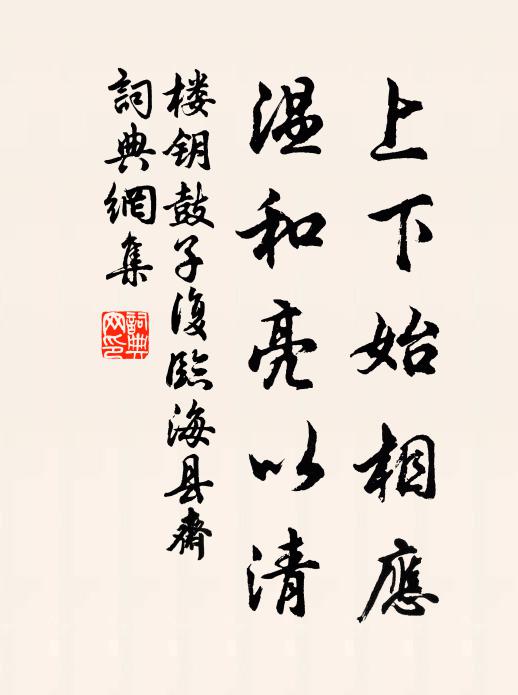 上下始相應
温和亮以清
楼钥鼓子復臨海县齋
詞典網集
詞典网印